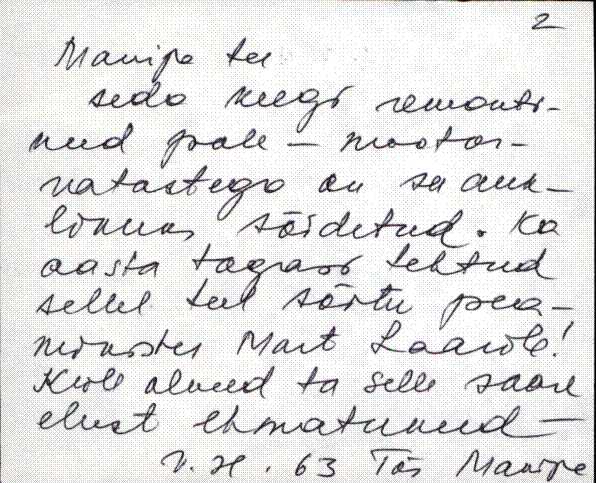 2
Manija tee
seda keegi remonti-
nud pole – mootor-
ratastega on ta auk-
likuks sõidetud. Ka
aasta tagasi tehtud
sellel teel sõitu pea-
minister Mart Laarile!
Küll olnud ta selle saare
elust ehmatunud –
V. H. 63 Tõs Manija